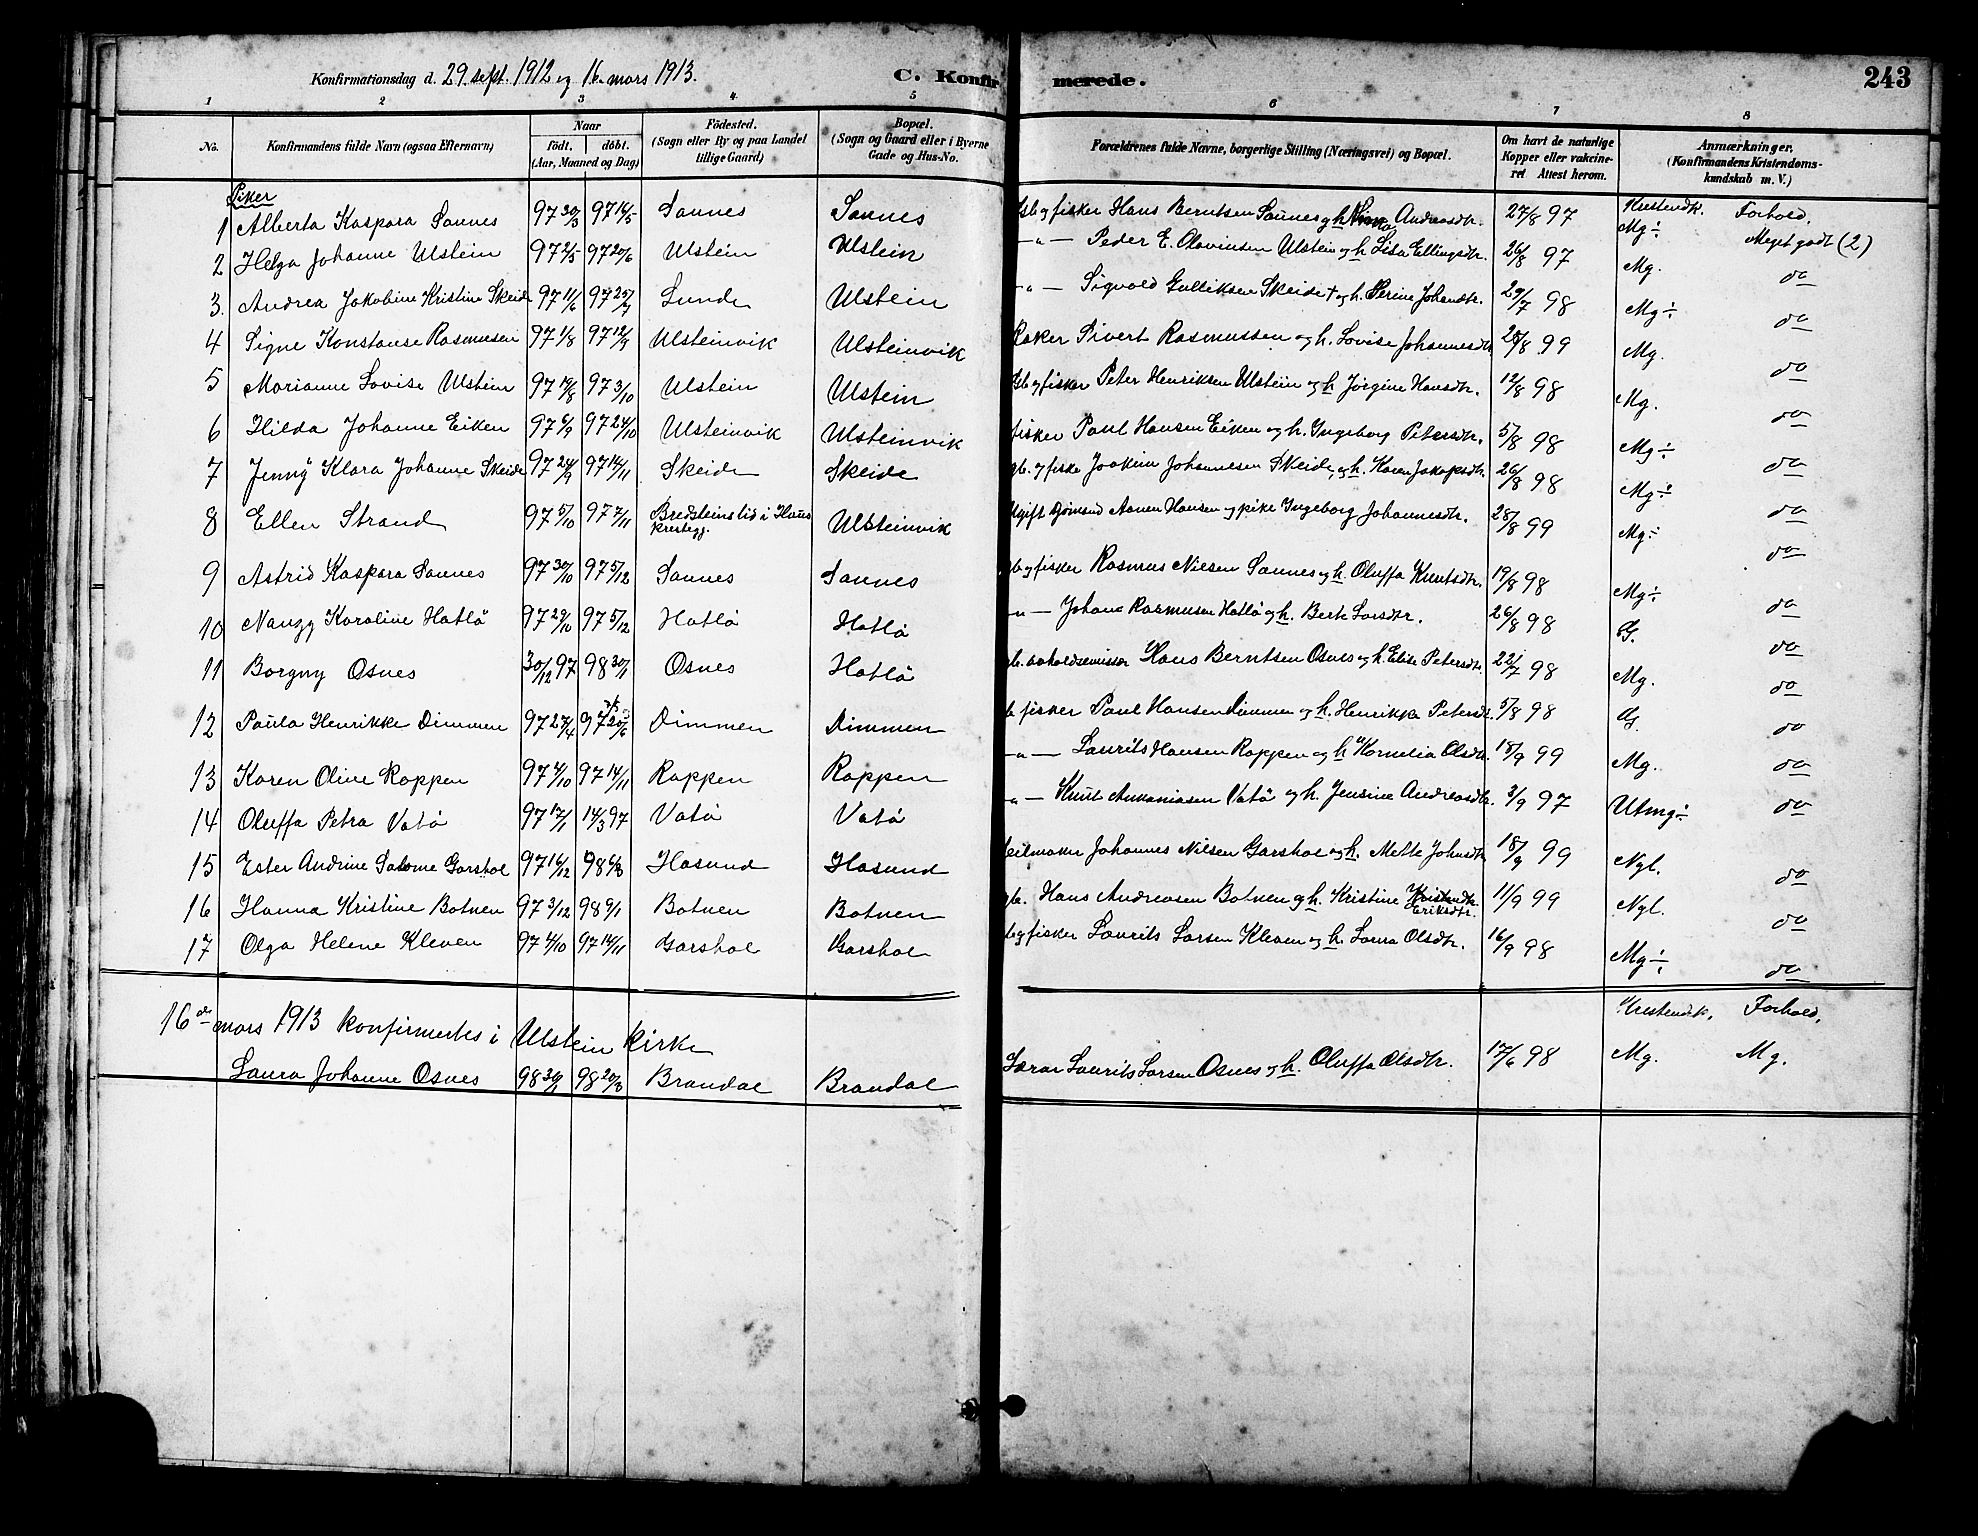 Konfirmationsdag d. 29. sept. 1912 og 16. mars 1913. C. Konfirmerede. 243
1 2 3 4 5 6 7 8
No. Konfirmandens fulde Navn (ogsaa Efternavn) Naar født. døbt. (Aar, Maaned og Dag) Fødested. (Sogn eller By og paa Landet tillige Gaard) Bopæl. (Sogn og Gaard eller i Byerne Gade og Hus-No. Forældrenes fulde Navne, borgerlige Stilling (Næringsvei) og Bopæl. Om havt de naturlige Kopper eller vakcineret Attest herom. Anmærkninger. (Konfirmandens Kristendomskundskab m. V.)
Piker Kristendk. Forhold.
1 Alberta Kaspara Saunes 97 30/3 97 16/5 Saunes Saunes Gb og fisker Hans Berntsen Saunes og h. Andreasdtr. 27/8 97 Mg ÷ Meget godt (2)
2 Helga Johanne Ulstein 97 2/5 97 20/6 Ulstein Ulstein -"- Peder E. Olavinsen Ulstein og h. Lisa Ellingsdtr. 26/8 97 Mg. do
3. Andrea Jakobine Kristine Skeide 97 11/6 97 25/7 Sunde Ulstein -"- Sigvald Gulliksen Skeide † og h. Serine Johansdtr. 29/7 98 Mg ÷ do
4 Signe Konstanse Rasmussen 97 1/8 97 12/9 Ulsteinvik Ulsteinvik Baker Sivert Rasmussen og h. Lovise Johannesdtr 28/8 99 Mg. do
5 Marianne Lovise Ulstein 97 19/8 97 3/10 Ulstein Ulstein Gb og fisker Peter Henriksen Ulstein og h. Jørgine Hansdtr. 12/8 98 Mg. do
6 Hilda Johanne Eiken 97 6/9 97 24/10 Ulsteinvik Ulsteinvik fisker Paul Hansen Eiken og h. Ingeborg Petersdtr. 5/8 98 Mg ÷ do
7 Jenny Klara Johanne Skeide 97 24/9 97 14/11 Skeide Skeide gb. og fisker Joakim Johannesen Skeide og h. Karen Jakopsdtr. 26/8 98 Mg ÷ do
8 Ellen Strand 97 5/10 97 7/11 Bredsteinslid i Ulsteinvik Ugift Hansen og pike Ingeborg Johannesdtr. 28/8 99 Mg ÷ do
9 Astrid Kaspara Saunes 97 30/10 97 5/12 Saunes Saunes gb og fisker Rasmus Nilsen Saunes og h. Oluffa Knutsdtr. 19/8 98 Mg ÷ do
10 Nanzy Karoline Hatlø 97 29/10 97 5/12 Hatlø Hatlø -"- Johan Rasmusen Hatlø og h. Berte Larsdtr. 26/8 98 G. do
11 Borgny Osnes 30/12 97 98 30/1 Osnes Hatlø gb. avholdsemissær Hans Berntsen Osnes og h. Elise Petersdtr 22/7 98 Mg. do
12 Paula Henrikke Dimmen 97 27/4 97 20/6 Dimmen Dimmen fisker Paul Hansen Dimmen og h. Henrikke Petersdtr. 5/8 98 G. do
13 Karen Oline Roppen 97 4/10 97 14/11 Roppen Roppen -"- Laurits Hansen Roppen og h. Kornelia Olsdtr 18/9 99 Mg. do
14 Oluffa Petra Vatø 97 17/1 14/3 97 Vatø Vatø -"- Knut Ananiasen Vatø og h. Jensine Andreasdtr. 3/9 97 Utmg ÷ do
15 Ester Andrine Salome Garshol 97 16/12 98 6/3 Hasund Hasund Seilmaker Johannes Nilsen Garshol og h. Mette Johnsdtr 18/9 99 Ngl. do
16 Hanna Kristine Botnen 97 3/12 98 9/1 Botnen Botnen gb. Hans Andreasen Botnen og h. Kristine Eriksdtr. 11/9 99 Ngl. do
17 Olga Helene Kleven 97 4/10 97 14/11 Garshol Garshol gb og fisker Laurits Larsen Kleven og h. Laura Olsdtr. 16/9 98 Mg ÷ do
16de mars 1913 konfirmertes i Ulstein kirke Kristendk. Forhold.
Laura Johanne Osnes 98 98 20/3 Brandal Brandal Lærar Laurits Larsen Osnes og h. Oluffa Olsdtr. 17/6 98 Mg. Mg.